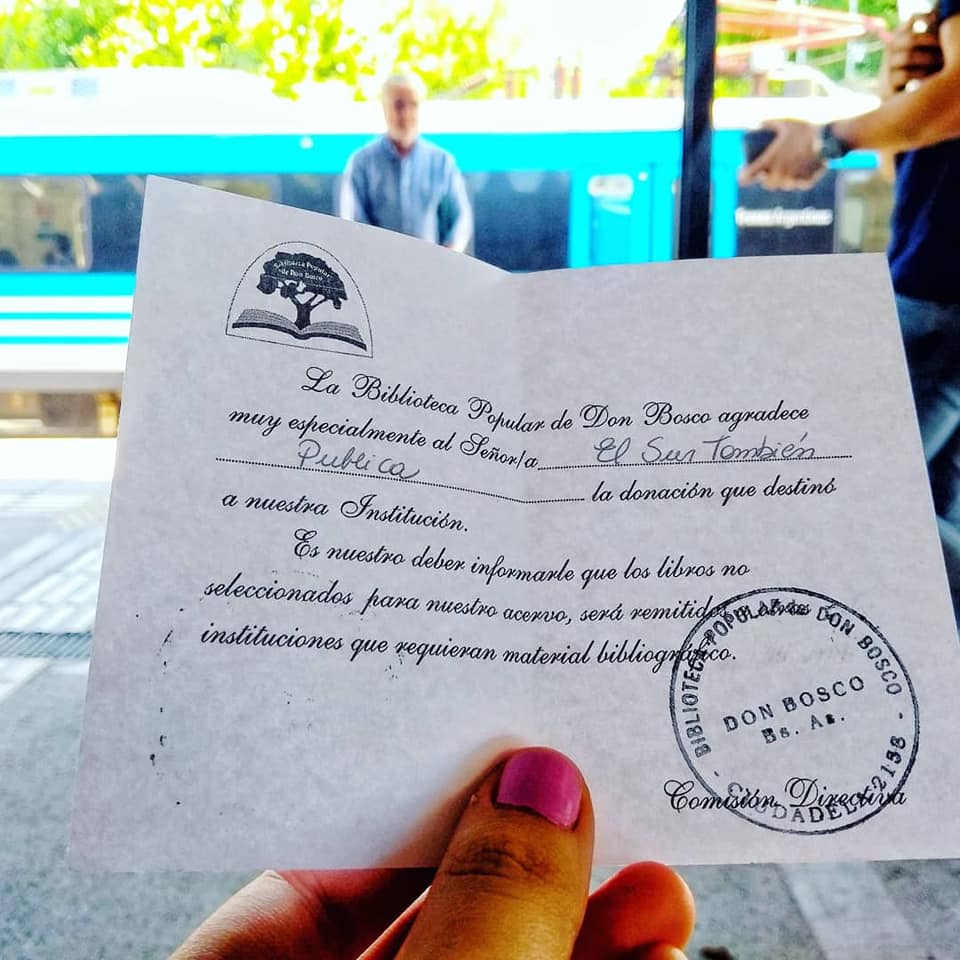 Biblioteca Popular
de Don Bosco
La Biblioteca Popular de Don Bosco agradece
muy especialmente al Señor/a El Sur También
Publica la donación que destinó
a nuestra Institución.
Es nuestro deber informarle que los libros no
seleccionados para nuestro acervo, será remitidos a otras
instituciones que requieran material bibliográfico.
BIBLIOTECA POPULAR DE DON BOSCO
DON BOSCO
Bs. As.
- CIUDADELA 2158 -
Comisión Directiva
Trenes Argentinos